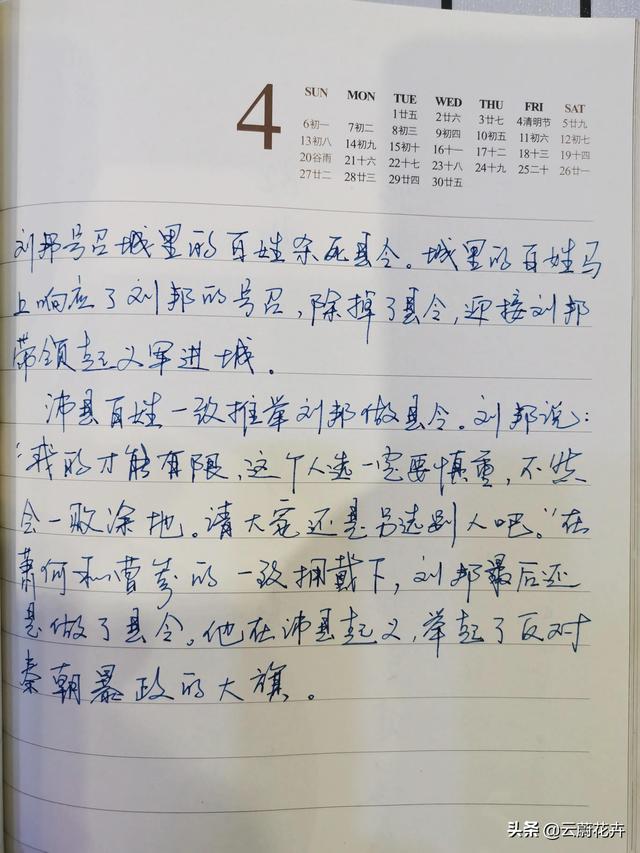 4
SUN MON TUE WED THU FRI SAT
1廿五 2廿六 3廿七 4清明节 5廿九
6初一 7初二 8初三 9初四 10初五 11初六 12初七
13初八 14初九 15初十 16十一 17十二 18十三 19十四
20谷雨 21十六 22十七 23十八 24十九 25二十 26廿一
27廿二 28廿三 29廿四 30廿五
刘邦号召城里的百姓杀死县令。城里的百姓马
上响应了刘邦的号召，除掉了县令，迎接刘邦
带领起义军进城。
沛县百姓一致推举刘邦做县令。刘邦说：
“我的才能有限，这个人选一定要慎重，不然
会一败涂地。请大家还是另选别人吧。”在
萧何和曹参的一致拥戴下，刘邦最后还
是做了县令。他在沛县起义，举起了反对
秦朝暴政的大旗。
头条 @云蔚花卉